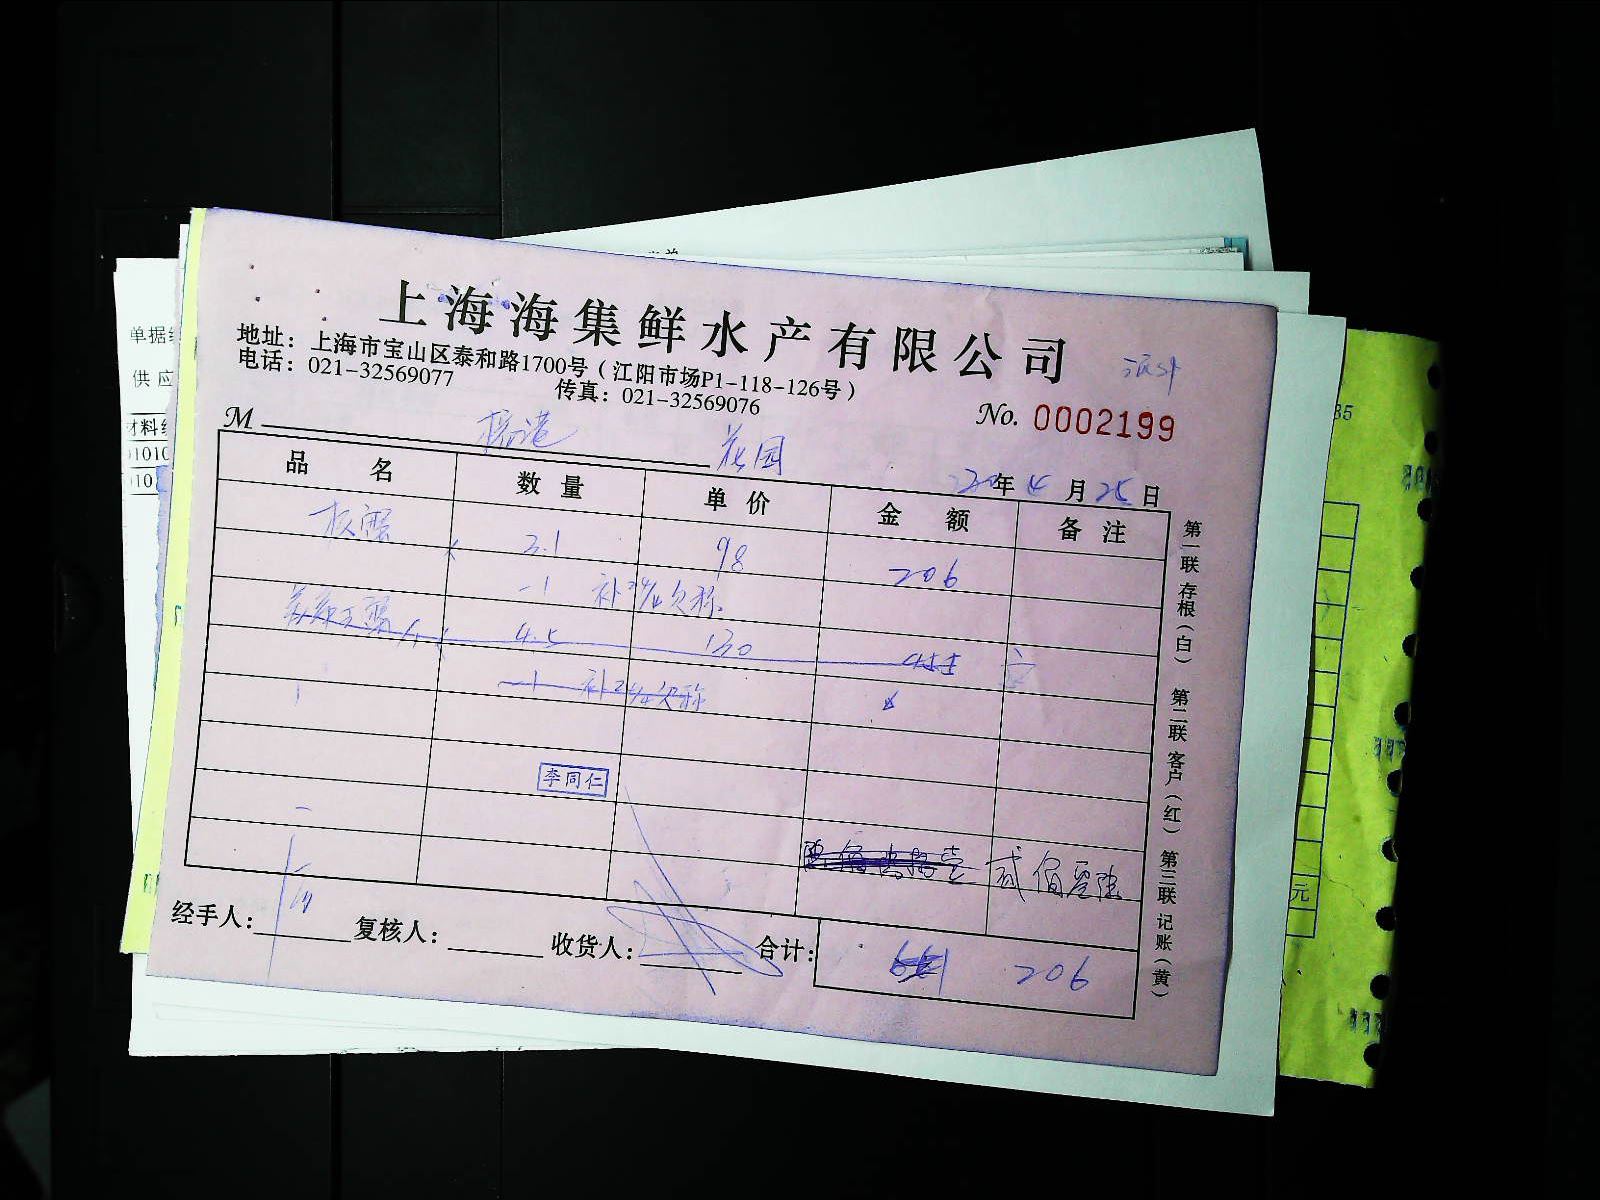 上海海集鲜水产有限公司
地址：上海市宝山区泰和路1700号（江阳市场P1-118-126号）
电话：021-32569077 传真：021-32569076
No. 0002199
M 杨港 花园
年 4 月 25 日
品名 数量 单价 金额 备注
2.1 98 206
-1 补24/4欠称
4.5 130 455
-1 补24/4欠称
李同仁
贰佰零陆
经手人： 复核人： 收货人： 合计： 206
第一联 存根（白） 第二联 客户（红） 第三联 记账（黄）
单据
供应
材料
01010
010
35
元